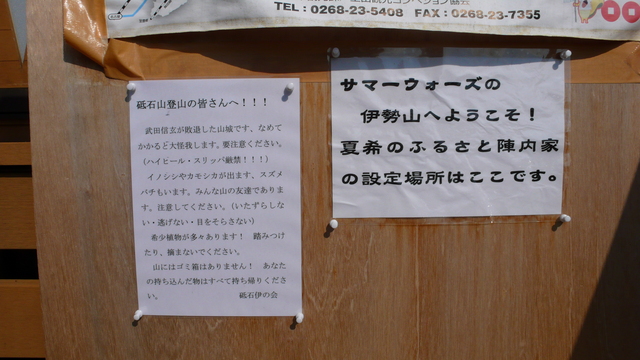 TEL：0268-23-5408　FAX：0268-23-7355
砥石山登山の皆さんへ！！！
武田信玄が敗退した山城です、なめて
かかると大怪我します。要注意ください。
（ハイヒール・スリッパ厳禁！！！）
イノシシやカモシカが出ます、スズメ
バチもいます。みんな山の友達でありま
す。注意してください。（いたずらしな
い・逃げない・目をそらさない）
希少植物が多々あります！　踏みつけ
たり、摘まないでください。
山にはゴミ箱はありません！　あなた
の持ち込んだ物はすべて持ち帰りくださ
い。　砥石伊の会
サマーウォーズの
伊勢山へようこそ！
夏希のふるさと陣内家
の設定場所はここです。